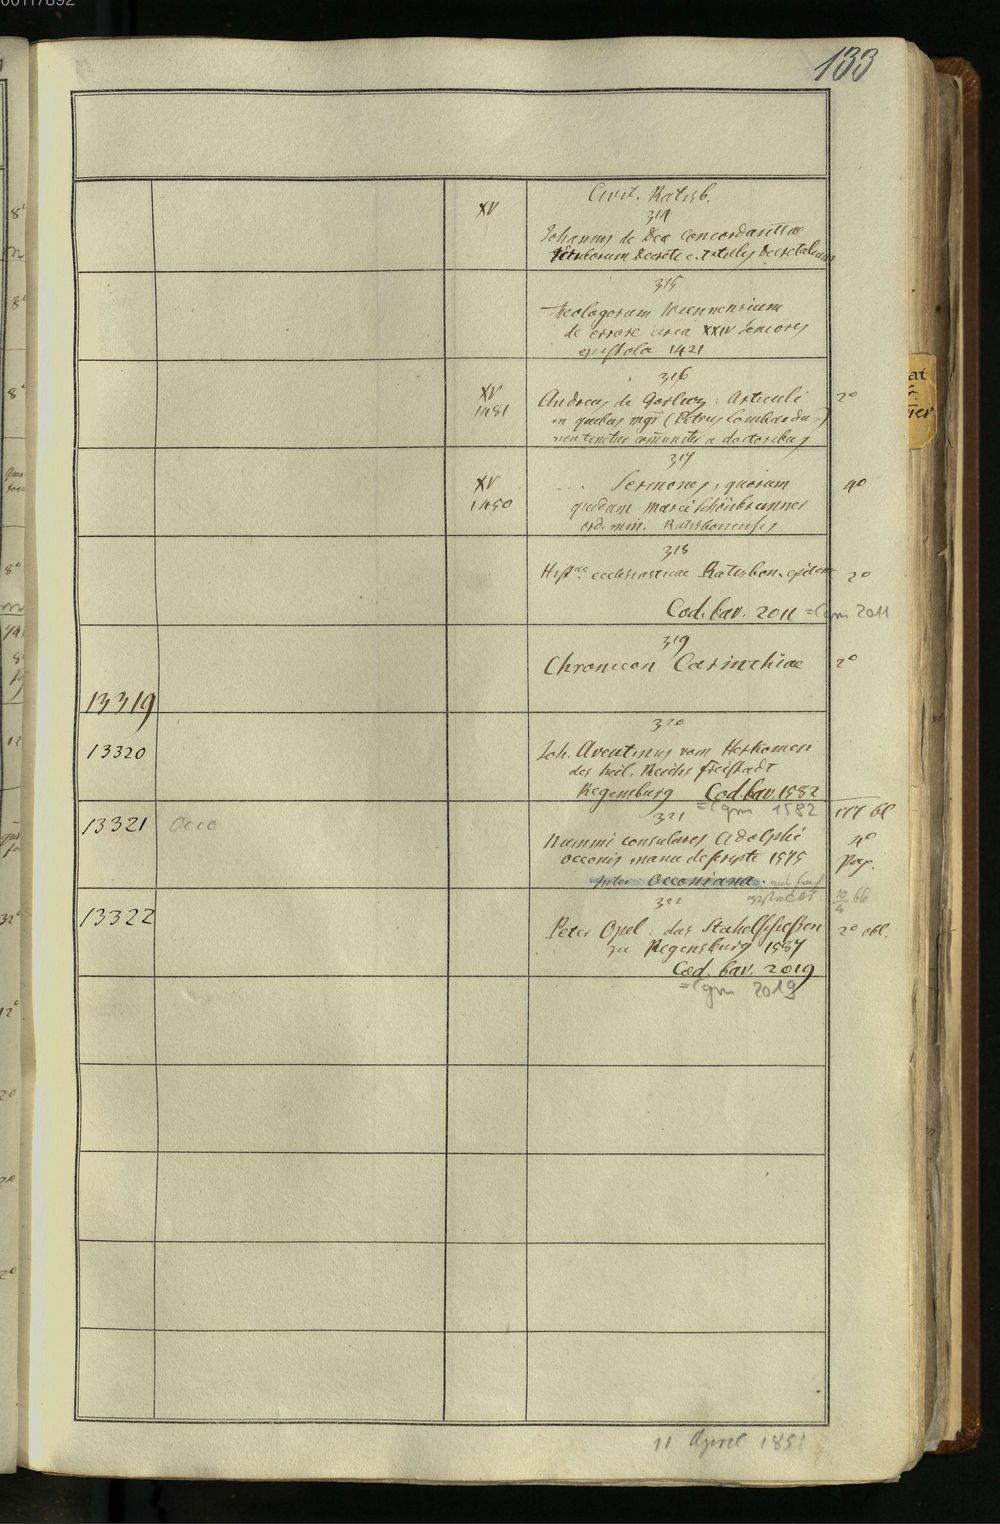 00117892
133
Civit. Ratisb.
XV
314
Johannes de Deo Concordantiae
titulorum Decreti c. titulis Decretalium
315
Theologorum Viennensium
de errore circa XXIV Seniores
epistola 1421
316
XV
1481
Andreas de Gorlwz: Articuli
in quibus mgr (Petrus Lombardus)
non tenetur comuniter a doctoribus
2°
317
XV
1450
Sermones, quorum
quidam Marci Schönbrunner
ord. min. Ratisbonensis
4°
318
Histae ecclesiasticae Ratisbon. epitome
2°
Cod. bav. 2011 = Cgm 2011
319
Chronicon Carinthiae
2°
13319
320
13320
Joh. Aventinus vom Herkomen
der heil. Reichs freistadt
Regensburg Cod. bav. 1582
= Cgm 1582
321
13321
Occo
Nummi consulares Adolphi
Occonis manu descripte 1575
inter Occoniana.
177 bl
4°
Pap.
10/4 66
322
13322
Peter Opel das Stahelschießen
zu Regensburg 1587
2° obl.
Cod. bav. 2019
= Cgm 2019
11 April 1851